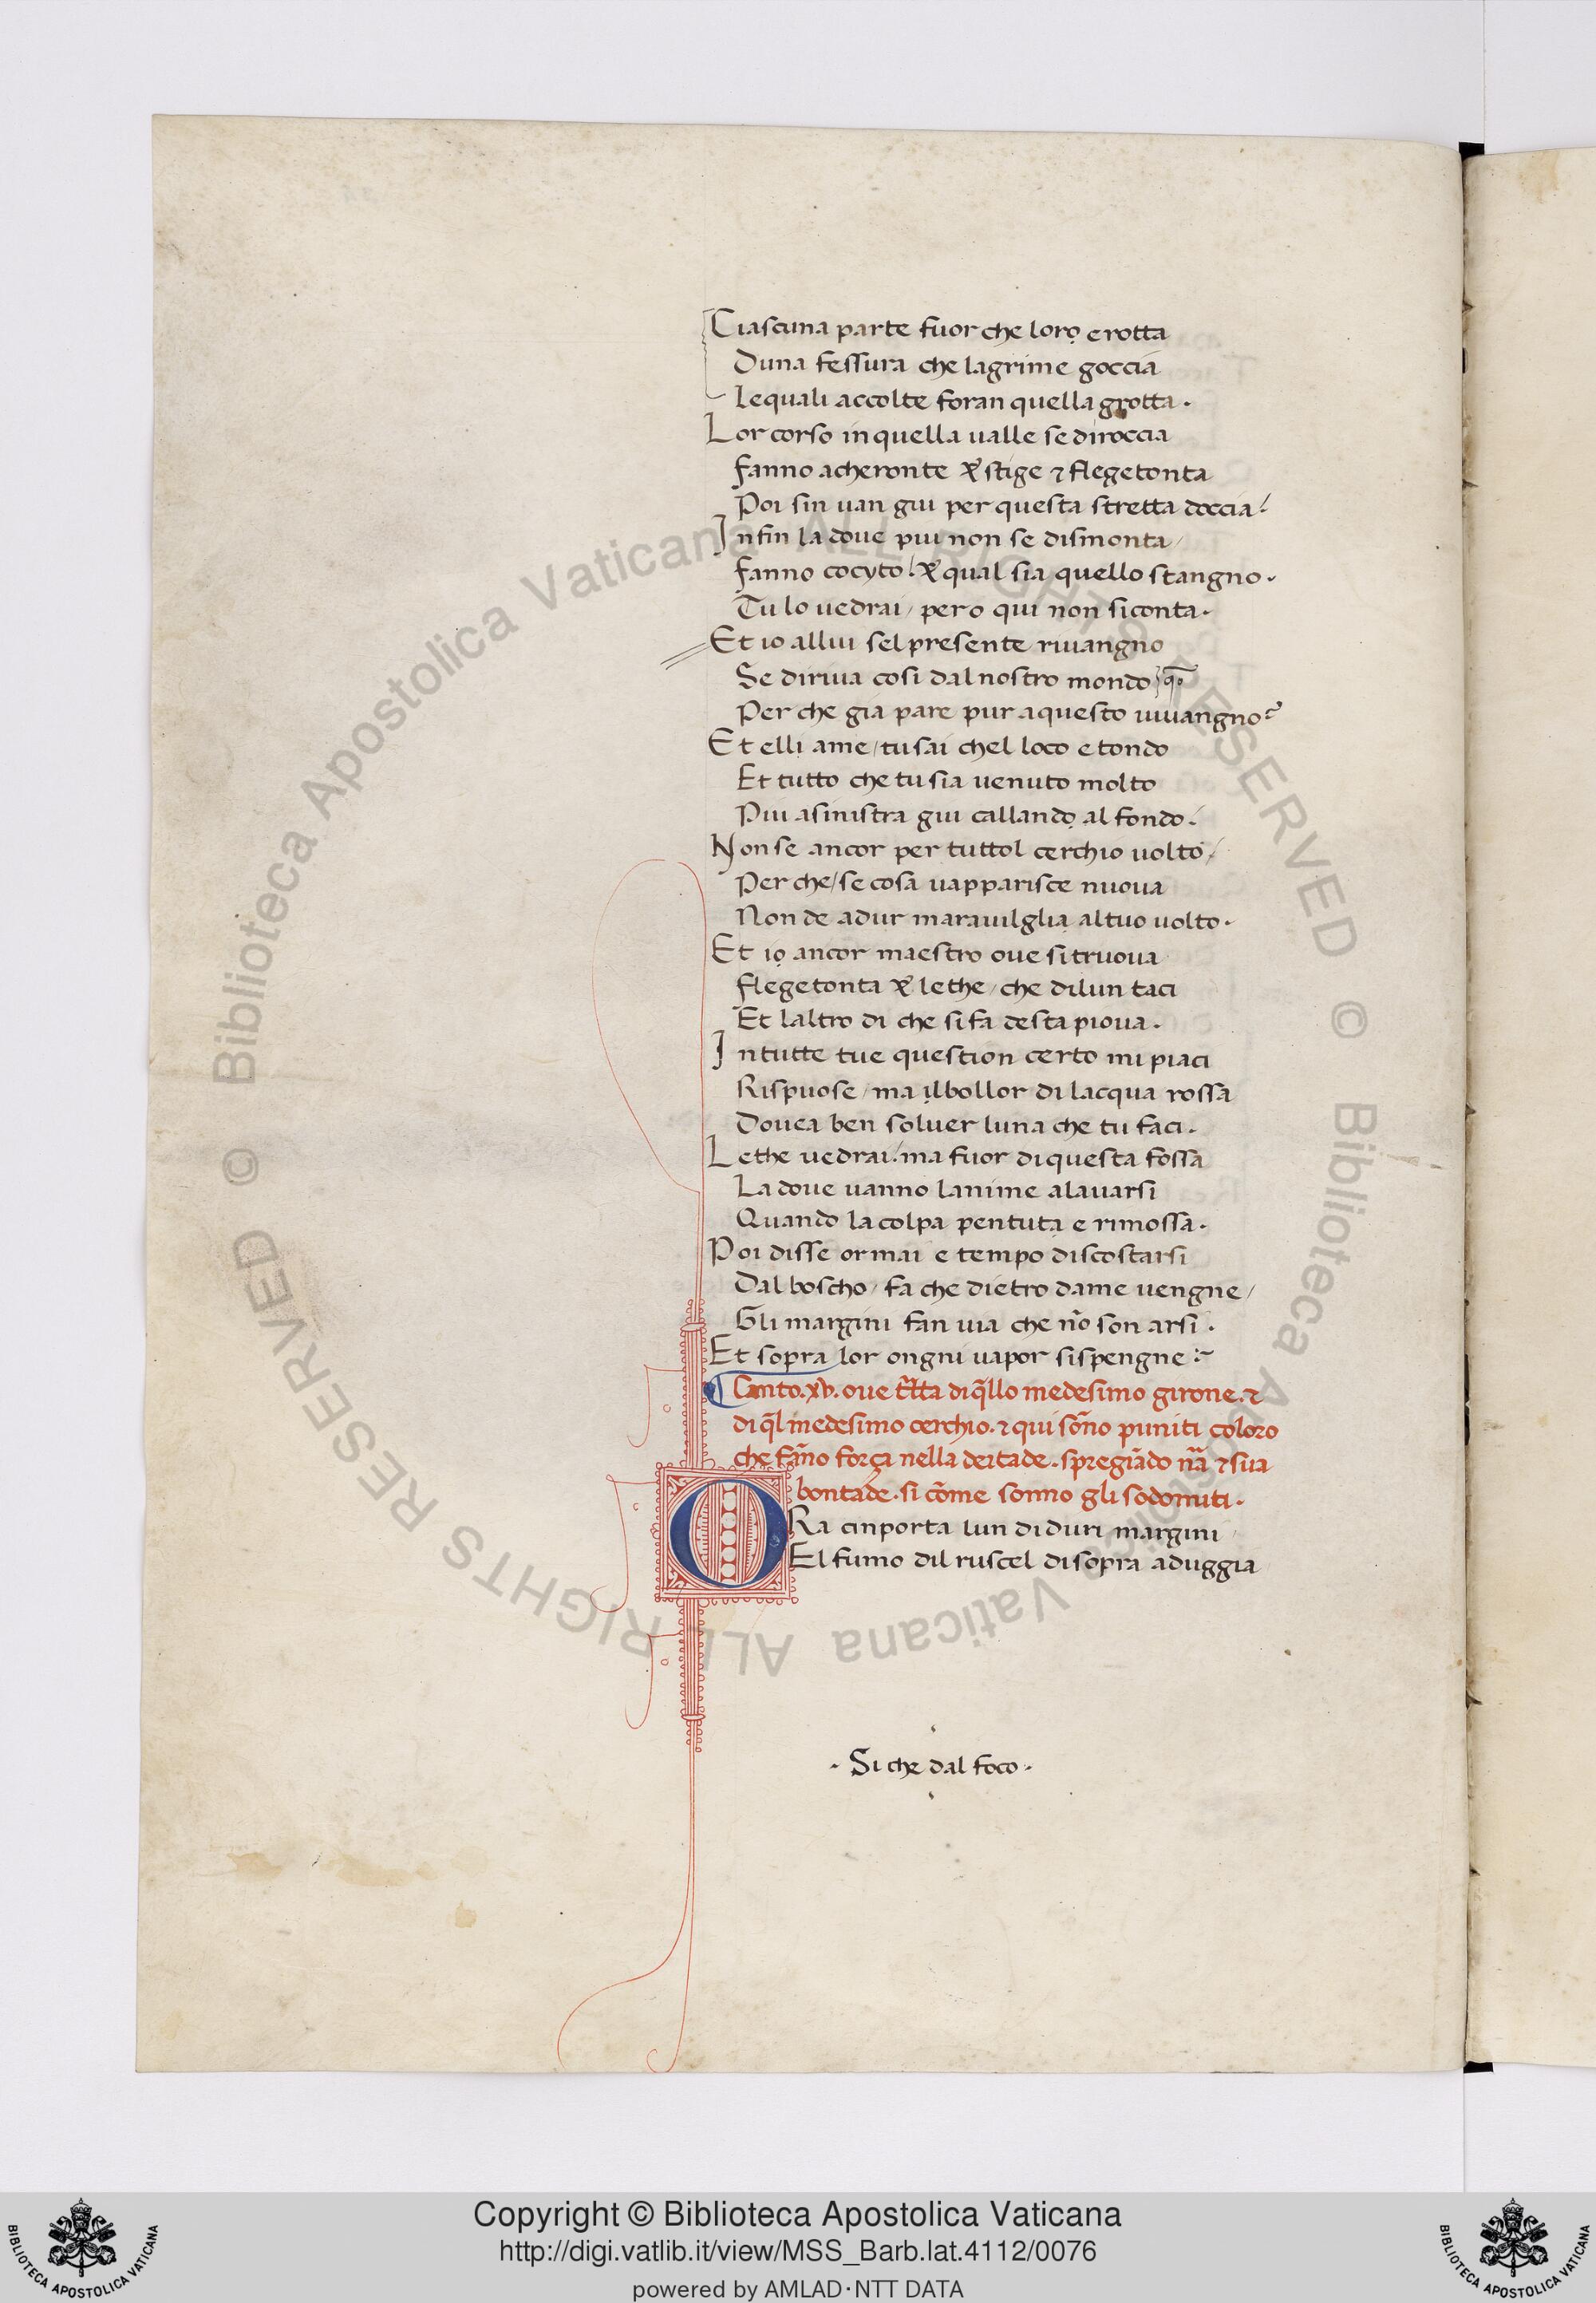 Ciascuna parte fuor che loro e rotta
Duna fessura che lagrime goccia
Lequali accolte foran quella grotta .
Lor corso in quella ualle se diroccia
fanno acheronte & stige ⁊ flegetonta
Poi sin uan giu per questa stretta doccia /
Infin la doue piu non se dismonta /
fanno cocyto / & qual sia quello stangno .
Tu lo uedrai / pero qui non siconta .
Et io allui sel presente riuangno
Se diriua cosi dal nostro mondo
Per che gia pare pur aquesto uiuangno
Et elli ame / tu sai chel loco e tondo
Et tutto che tu sia uenuto molto
Piu asinistra giu callando al fondo .
Non se ancor per tuttol cerchio uolto /
Per che / se cosa uapparisce nuoua
Non de adur marauilglia altuo uolto .
Et io ancor maestro oue si truoua
flegetonta & lethe / che dilun taci
Et laltro di che si fa desta pioua .
In tutte tue question certo mi piaci
Rispuose / ma il bollor di lacqua rossa
Douea ben soluer luna che tu faci .
Lethe uedrai . ma fuor di questa fossa
La doue uanno lanime alauarsi
Quando la colpa pentuta e rimossa .
Poi disse ormai e tempo discostarsi
Dal boscho / fa che dietro dame uengne /
Gli margini fan uia che nõ son arsi .
Et sopra lor ongni uapor sispengne
¶ Canto . xv . oue tr̃tta di q̃llo medesimo girone . ⁊
di q̃l medesimo cerchio . ⁊ qui sõno puniti coloro
che fãno força nella deitade . spregiãdo nr̃a ⁊ sua
bontade . si cõme sonno gli sodomiti .
ORa cinporta lun di duri margini
El fumo dil ruscel di sopra aduggia
. Si che dal foco .
© Biblioteca Apostolica Vaticana ALL RIGHTS RESERVED © Biblioteca Apostolica Vaticana ALL RIGHTS RESERVED
BIBLIOTECA APOSTOLICA VATICANA
Copyright © Biblioteca Apostolica Vaticana
http://digi.vatlib.it/view/MSS_Barb.lat.4112/0076
powered by AMLAD·NTT DATA
BIBLIOTECA APOSTOLICA VATICANA